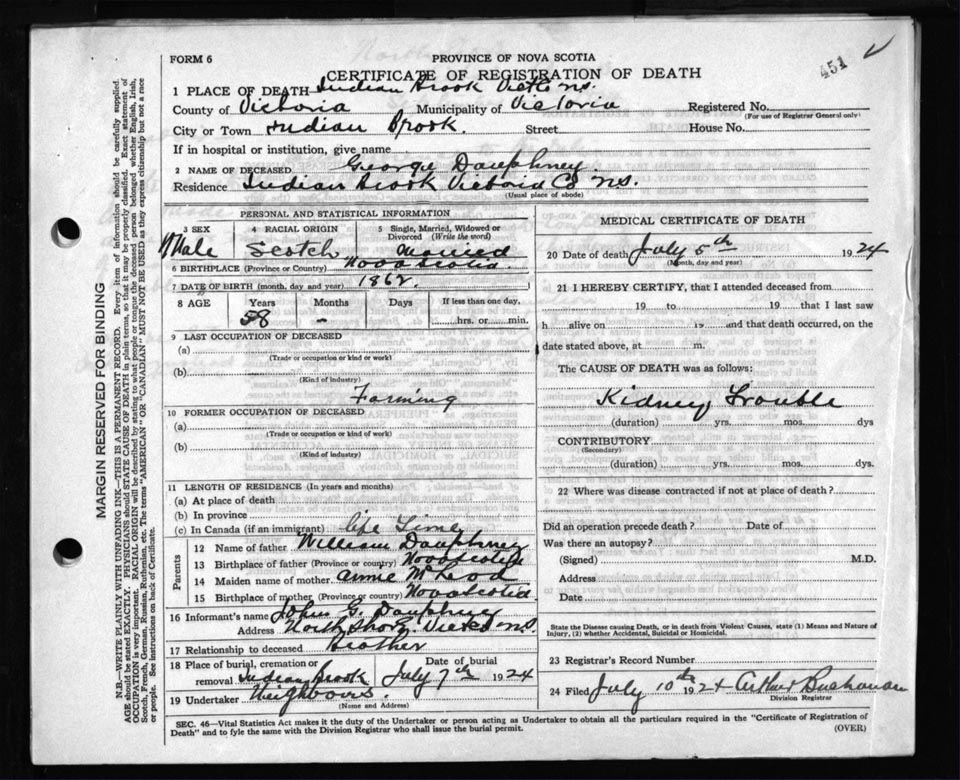 451
FORM 6
PROVINCE OF NOVA SCOTIA
CERTIFICATE OF REGISTRATION OF DEATH
1 PLACE OF DEATH Indian Brook Victo N.S.
County of Victoria Municipality of Victoria Registered No.
(For use of Registrar General only)
City or Town Indian Brook. Street House No.
If in hospital or institution, give name
2 NAME OF DECEASED George Dauphney
Residence Indian Brook Victoria Co N.S.
(Usual place of abode)
PERSONAL AND STATISTICAL INFORMATION
3 SEX 4 RACIAL ORIGIN 5 Single, Married, Widowed or Divorced (Write the word)
Male Scotch Married
6 BIRTHPLACE (Province or Country) Nova Scotia.
7 DATE OF BIRTH (month, day and year) 1862.
8 AGE Years Months Days If less than one day,
58 - hrs. or min.
9 LAST OCCUPATION OF DECEASED
(a)
(Trade or occupation or kind or work)
(b)
(Kind of industry)
Farming
10 FORMER OCCUPATION OF DECEASED
(a)
(Trade or occupation or kind of work)
(b)
(Kind of industry)
11 LENGTH OF RESIDENCE (In years and months)
(a) At place of death
(b) In province
(c) In Canada (if an immigrant) life Time
Parents
12 Name of father William Dauphney
13 Birthplace of father (Province or country) Nova Scotia
14 Maiden name of mother Annie McLeod
15 Birthplace of mother (Province or country) Nova Scotia
16 Informant's name John G. Dauphney
Address North Shore. Victo N.S.
17 Relationship to deceased Brother
18 Place of burial, cremation or removal Indian Brook Date of burial July 7th 1924
19 Undertaker Neighbours.
(Name and Address)
MEDICAL CERTIFICATE OF DEATH
20 Date of death July 5th 1924
(Month, day and year)
21 I HEREBY CERTIFY, that I attended deceased from
19 to 19 that I last saw
h alive on 19 and that death occurred, on the
date stated above, at m.
The CAUSE OF DEATH was as follows:
Kidney Trouble
(duration) yrs. mos. dys
CONTRIBUTORY
(Secondary)
(duration) yrs. mos. dys.
22 Where was disease contracted if not at place of death?
Did an operation precede death? Date of
Was there an autopsy?
(Signed) M.D.
Address
Date
State the Disease causing Death, or in death from Violent Causes, state (1) Means and Nature of
Injury, (2) whether Accidental, Suicidal or Homicidal.
23 Registrar's Record Number
24 Filed July 10th 1924 Arthur Buchanan
Division Registrar
SEC. 46—Vital Statistics Act makes it the duty of the Undertaker or person acting as Undertaker to obtain all the particulars required in the "Certificate of Registration of
Death" and to fyle the same with the Division Registrar who shall issue the burial permit.
(OVER)
MARGIN RESERVED FOR BINDING
N.B.—WRITE PLAINLY WITH UNFADING INK—THIS IS A PERMANENT RECORD. Every item of information should be carefully supplied.
AGE should be stated EXACTLY. PHYSICIANS should STATE CAUSE OF DEATH in plain terms, so that it may be properly classified. Exact statement of
OCCUPATION is very important. RACIAL ORIGIN will be described by stating to what people or tongue the deceased person belonged whether English, Irish,
Scotch, French, German, Russian, Ruthenian, etc. The terms "AMERICAN" OR "CANADIAN" MUST NOT BE USED as they express citizenship but not a race
or people. See instructions on back of Certificate.